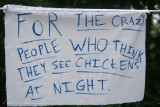 FOR THE CRAZY
PEOPLE WHO THINK
THEY SEE CHICKENS
AT NIGHT.